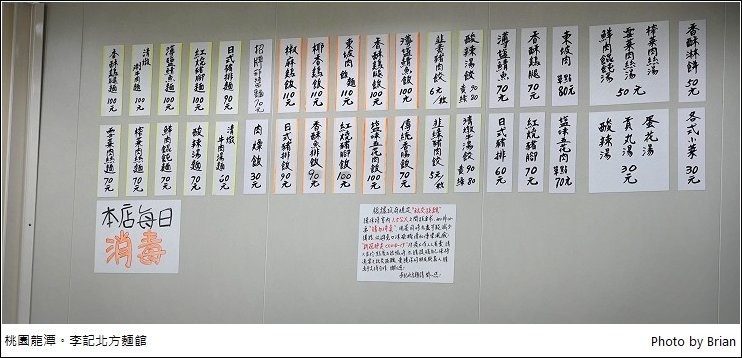 香酥雞腿麵 100元
清燉半肉麵 100元
薄塩鯖魚麵 100元
紅燒豬腳麵 100元
日式豬排麵 90元
招牌炸醬麵 70元
椒麻雞飯 110元
椰香雞飯 110元
東坡肉飯麵 110元
香酥雞腿飯 100元
薄塩鯖魚飯 100元
韭黃豬肉餃 6元/粒
酸辣湯餃 黃90 綠80
薄塩鯖魚 70元
香酥雞腿 70元
東坡肉 單點80元
鮮肉餛飩湯
雪菜肉絲湯
榨菜肉絲湯
50元
香酥淋餅 50元
雪菜肉絲麵 70元
榨菜肉絲麵 70元
鮮肉餛飩麵 70元
酸辣湯麵 70元
清燉牛肉湯麵 60元
肉燥飯 30元
日式豬排飯 90元
香酥魚排飯 90元
紅燒豬腳飯 100元
塩味五花肉飯 100元
傳統香腸飯 70元
韭綠豬肉餃 5元/粒
清燉牛湯餃 黃90 綠80
日式豬排 60元
紅燒豬腳 70元
塩味五花肉 單點70元
酸辣湯
貢丸湯
蛋花湯
30元
各式小菜 30元
本店每日
消毒
桃園龍潭。李記北方麵館
Photo by Brian